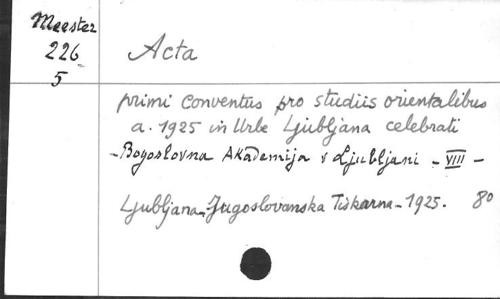 Meester
226
5
Acta
primi conventus pro studiis orientalibus
a. 1925 in Urbe Ljubljana celebrati
- Bogoslovna Akademija v Ljubljani - VIII -
Ljubljana - Jugoslovanska Tiskarna - 1925. 8º